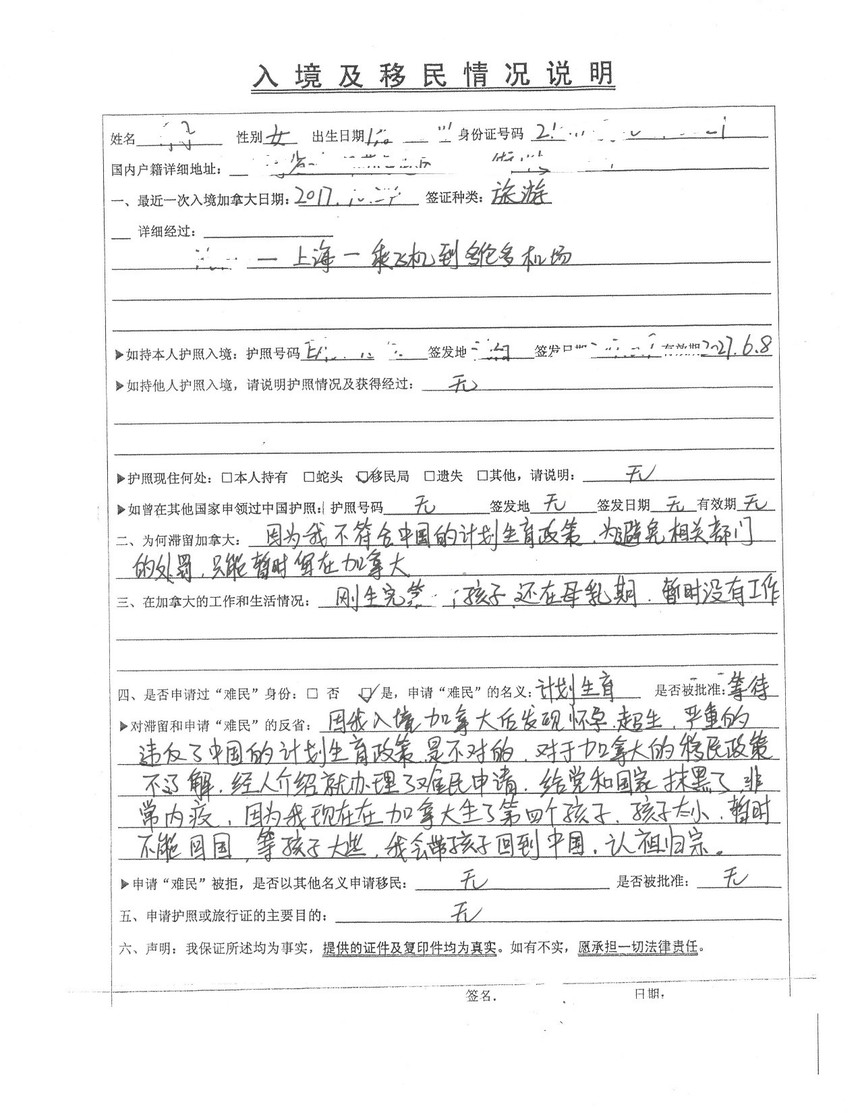 入境及移民情况说明
姓名 性别 女 出生日期 身份证号码
国内户籍详细地址：
一、最近一次入境加拿大日期：2017. 签证种类：旅游
详细经过：
— 上海 — 乘飞机到多伦多机场
▶如持本人护照入境：护照号码 签发地 签发日 有效期 2027.6.8
▶如持他人护照入境，请说明护照情况及获得经过： 无
▶护照现住何处：□本人持有 □蛇头 ☑移民局 □遗失 □其他，请说明： 无
▶如曾在其他国家申领过中国护照：护照号码 无 签发地 无 签发日期 无 有效期 无
二、为何滞留加拿大： 因为我不符合中国的计划生育政策，为避免相关部门
的处罚，只能暂时留在加拿大
三、在加拿大的工作和生活情况： 刚生完第 孩子，还在母乳期，暂时没有工作
四、是否申请过“难民”身份：□ 否 ☑是，申请“难民”的名义：计划生育 是否被批准：等待
▶对滞留和申请“难民”的反省： 因我入境加拿大后发现怀孕，超生，严重的
违反了中国的计划生育政策是不对的，对于加拿大的移民政策
不了解，经人介绍就办理了难民申请，给党和国家抹黑了，非
常内疚，因为我现在在加拿大生了第四个孩子，孩子太小，暂时
不能回国，等孩子大些，我会带孩子回到中国，认祖归宗。
▶申请“难民”被拒，是否以其他名义申请移民： 无 是否被批准： 无
五、申请护照或旅行证的主要目的： 无
六、声明：我保证所述均为事实，提供的证件及复印件均为真实。如有不实，愿承担一切法律责任。
签名. 日期,